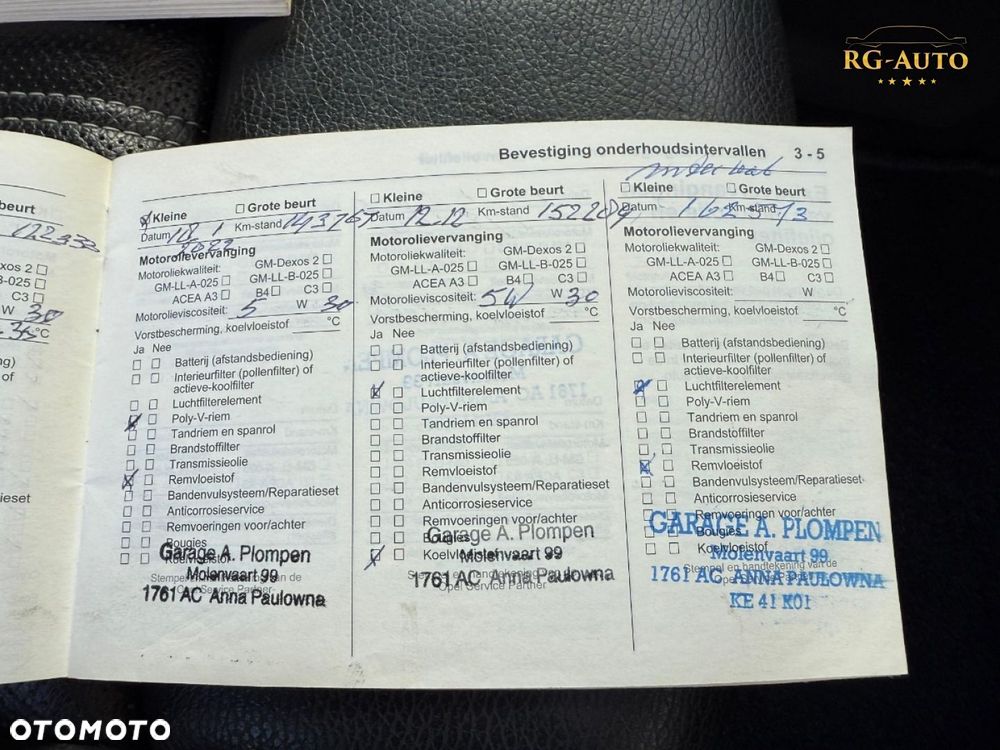 RG-AUTO
Bevestiging onderhoudsintervallen 3 - 5
beurt
122333
Dexos 2
B-025
C3
W 30
°C
ng)
of
ieset
Kleine Grote beurt
Datum 18 1 Km-stand 143765
Motorolievervanging
Motoroliekwaliteit: GM-Dexos 2
GM-LL-A-025 GM-LL-B-025
ACEA A3 B4 C3
Motorolieviscositeit: 5 W 30
Vorstbescherming, koelvloeistof °C
Ja Nee
Batterij (afstandsbediening)
Interieurfilter (pollenfilter) of
actieve-koolfilter
Luchtfilterelement
Poly-V-riem
Tandriem en spanrol
Brandstoffilter
Transmissieolie
Remvloeistof
Bandenvulsysteem/Reparatieset
Anticorrosieservice
Remvoeringen voor/achter
Bougies
Koelvloeistof
Garage A. Plompen
Molenvaart 99
1761 AC Anna Paulowna
Kleine Grote beurt
Datum 12-12 Km-stand 152204
Motorolievervanging
Motoroliekwaliteit: GM-Dexos 2
GM-LL-A-025 GM-LL-B-025
ACEA A3 B4 C3
Motorolieviscositeit: 5W W 30
Vorstbescherming, koelvloeistof °C
Ja Nee
Batterij (afstandsbediening)
Interieurfilter (pollenfilter) of
actieve-koolfilter
Luchtfilterelement
Poly-V-riem
Tandriem en spanrol
Brandstoffilter
Transmissieolie
Remvloeistof
Bandenvulsysteem/Reparatieset
Anticorrosieservice
Remvoeringen voor/achter
Bougies
Koelvloeistof
Garage A. Plompen
Molenvaart 99
Stempel en handtekening van de
Opel Service Partner
1761 AC Anna Paulowna
Kleine Grote beurt
Datum Km-stand
Motorolievervanging
Motoroliekwaliteit: GM-Dexos 2
GM-LL-A-025 GM-LL-B-025
ACEA A3 B4 C3
Motorolieviscositeit: W
Vorstbescherming, koelvloeistof °C
Ja Nee
Batterij (afstandsbediening)
Interieurfilter (pollenfilter) of
actieve-koolfilter
Luchtfilterelement
Poly-V-riem
Tandriem en spanrol
Brandstoffilter
Transmissieolie
Remvloeistof
Bandenvulsysteem/Reparatieset
Anticorrosieservice
Remvoeringen voor/achter
Bougies
Koelvloeistof
Stempel en handtekening van de
Opel Service Partner
GARAGE A. PLOMPEN
Molenvaart 99
1761 AC ANNA PAULOWNA
KE 41 K01
OTOMOTO